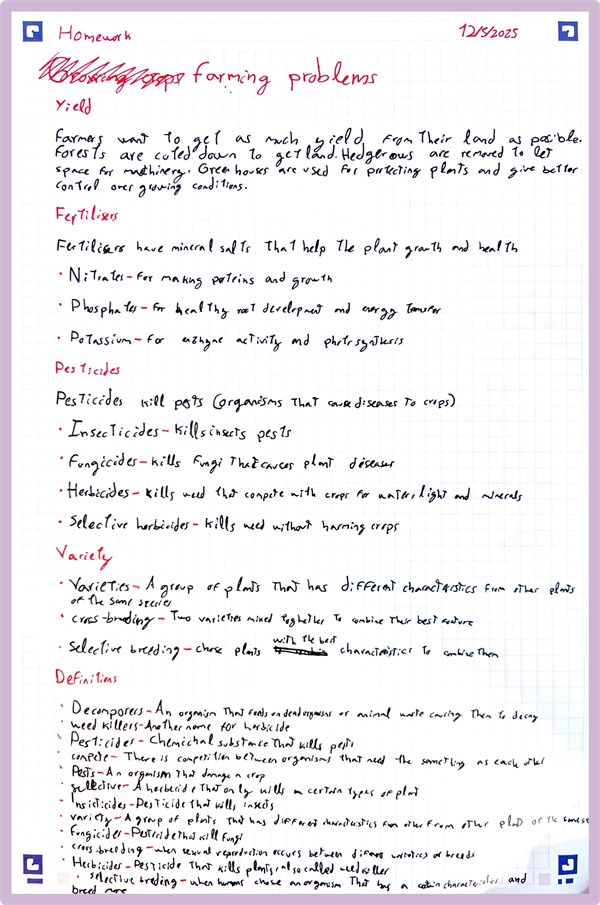 Homework
12/5/2025
Farming problems
Yield
Farmers want to get as much yield from their land as posible.
Forests are cuted down to get land. Hedgerows are removed to let
space for machinery. Green houses are used for protecting plants and give better
control over growing conditions.
Fertilisers
Fertilisers have mineral salts that help the plant growth and health
• Nitrates - For making proteins and growth
• Phosphates - For healthy root development and energy transfer
• Potassium - For enzyme activity and photosynthesis
Pesticides
Pesticides kill pests (organisms that cause diseases to crops)
• Insecticides - Kills insects pests
• Fungicides - Kills fungi that causes plant diseases
• Herbicides - Kills weed that compete with crops for water, light and minerals
• Selective herbicides - Kills weed without harming crops
Variety
• Varieties - A group of plants that has different characteristics from other plants
of the same species
• cross-breeding - Two varieties mixed together to combine their best feature
• Selective breeding - chose plants with the best characteristics to combine them
Definitions
• Decomposers - An organism that feeds on dead organisms or animal waste causing them to decay
• weed killers - Another name for herbicide
• Pesticides - Chemichal substance that kills pests
• compete - There is competition between organisms that need the something as each other
• Pests - An organism that damage a crop
• selective - A herbecide that only kills a certain types of plant
• Insicticides - Pesticide that kills insects
• variety - A group of plants that has different characteristics from other from other plants of the same
• Fungicides - Pesticide that kill fungi
• cross-breeding - when sexual reproduction occurs between varieties or breeds
• Herbicides - Pesticide that kills plants, also called weed killer
• selective breeding - when humans chose an organism that has a certain characteristics and
breed more